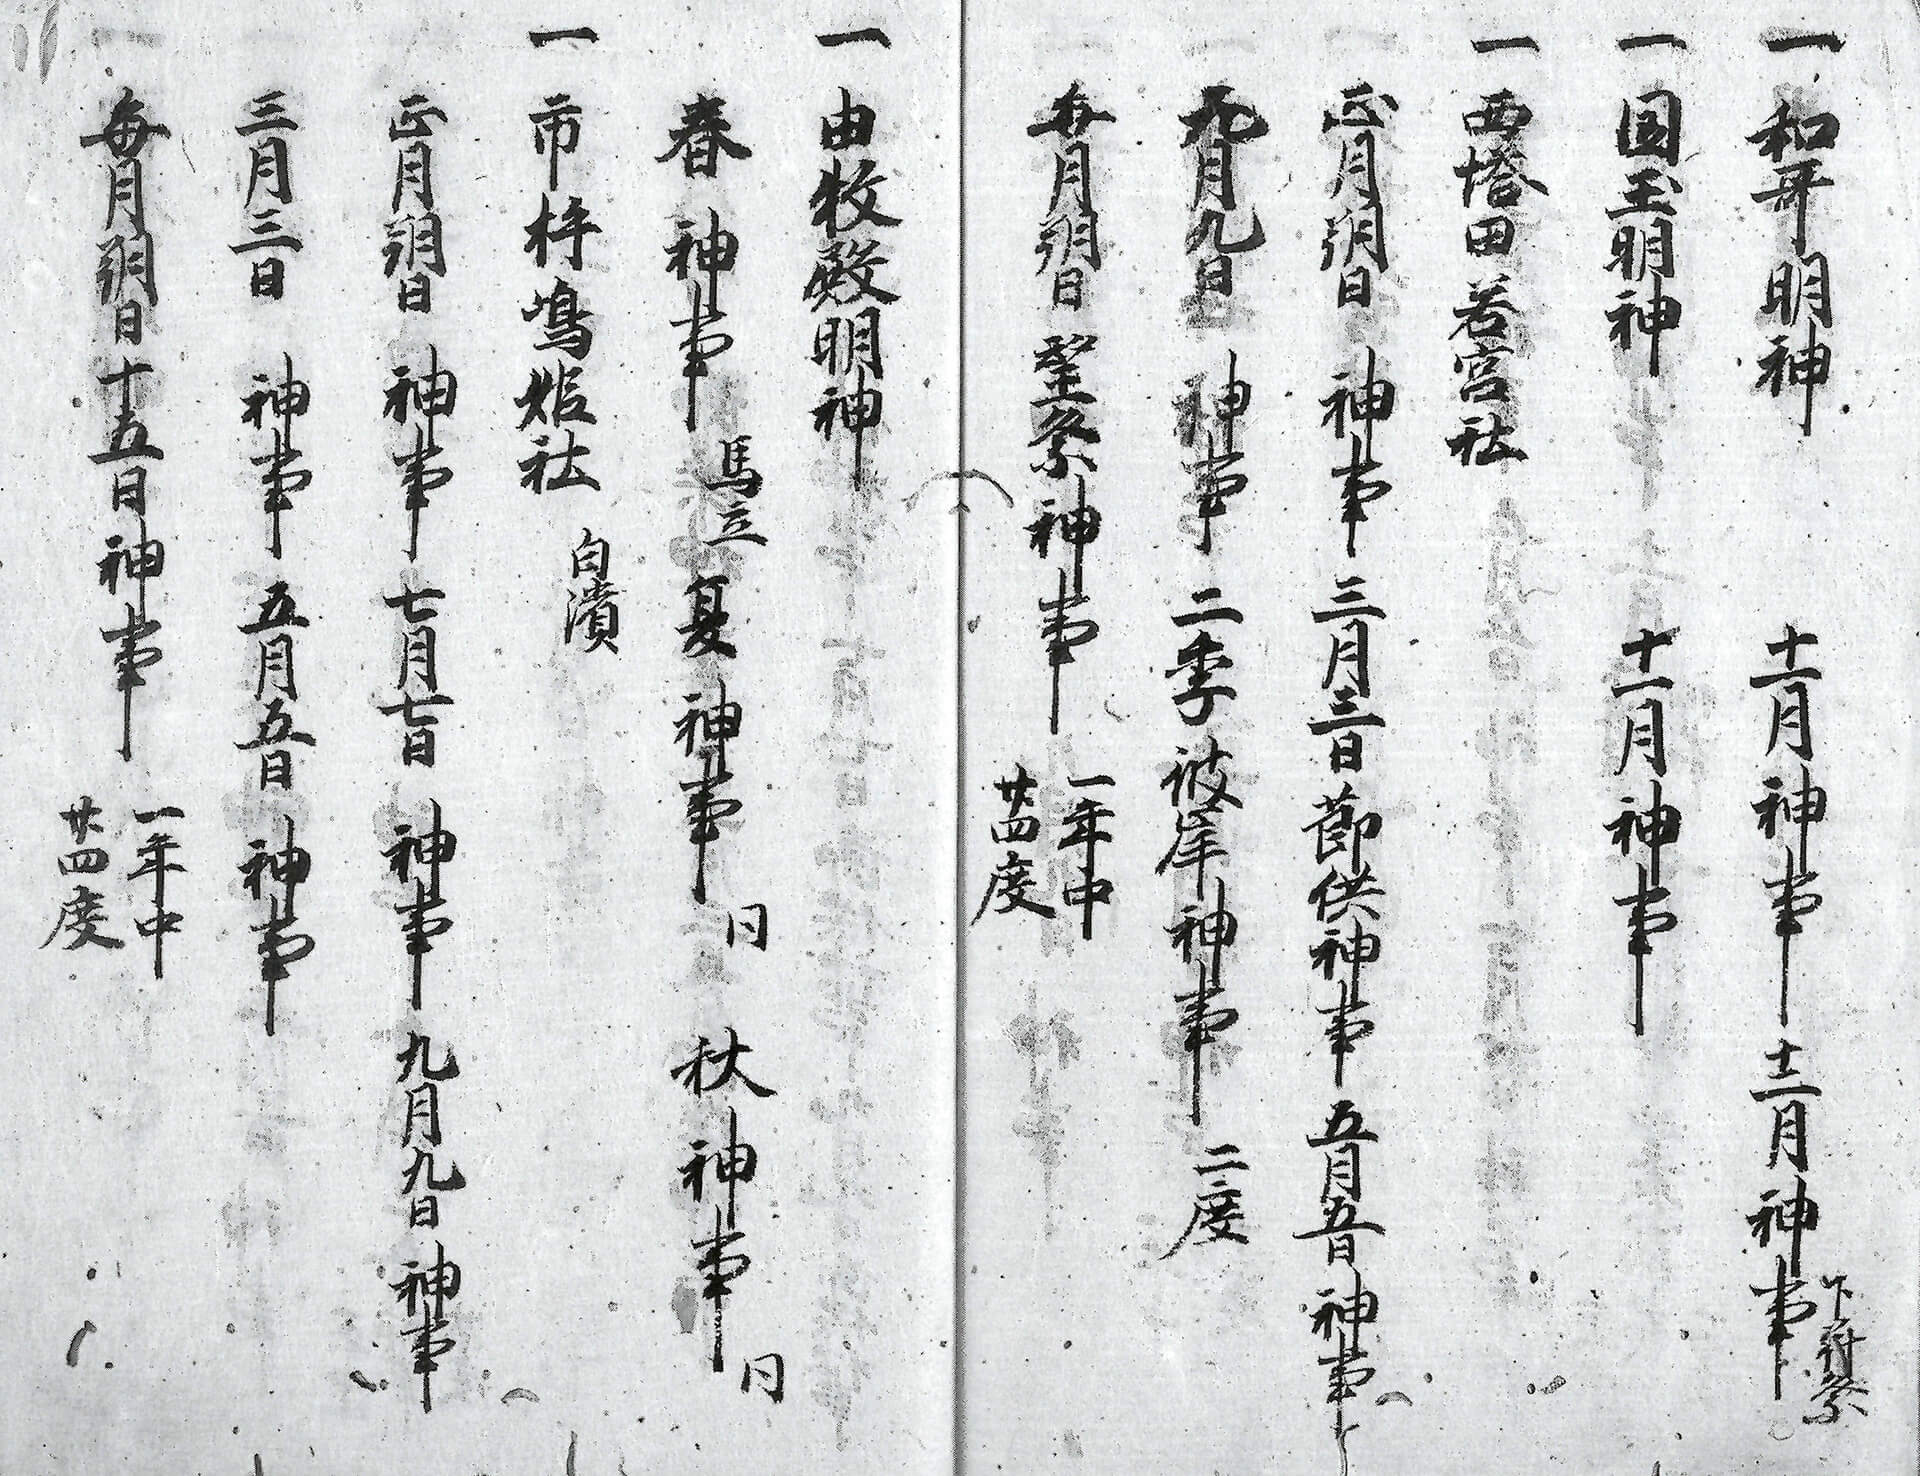 一 和哥明神 十一月神事 十二月神事 下村祭
一 国玉明神 十一月神事
一 西塔田若宮社
正月朔日 神事 三月三日節供神事 五月五日神事
九月九日 神事 二季彼岸神事 二度
毎月朔日 祭神事 一年中 廿四度
一 由牧殿明神
春 神事 馬立 夏 神事 同 秋 神事 同
一 市杵嶋姫社 白濱
正月朔日 神事 七月七日 神事 九月九日 神事
三月三日 神事 五月五日 神事
毎月朔日十五日神事 一年中 廿四度